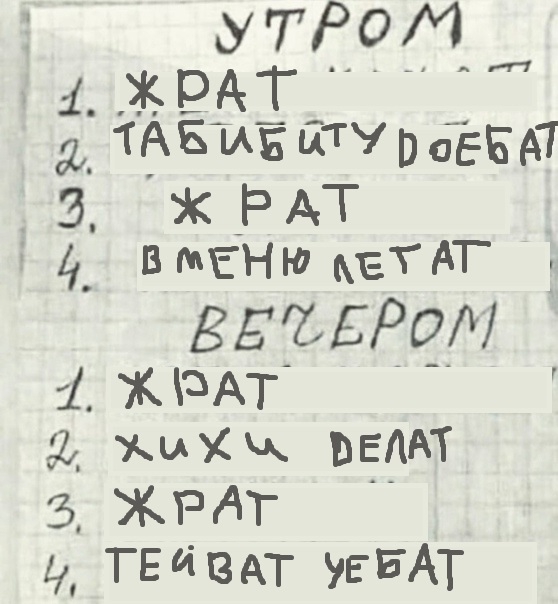 УТРОМ
1. ЖРАТ
2. ТАБИБИТУ DОЕБАТ
3. ЖРАТ
4. В МЕНЮ ЛЕТАТ
ВЕЧЕРОМ
1. ЖРАТ
2. ХИХИ DЕЛАТ
3. ЖРАТ
4. ТЕЙВАТ УЕБАТ